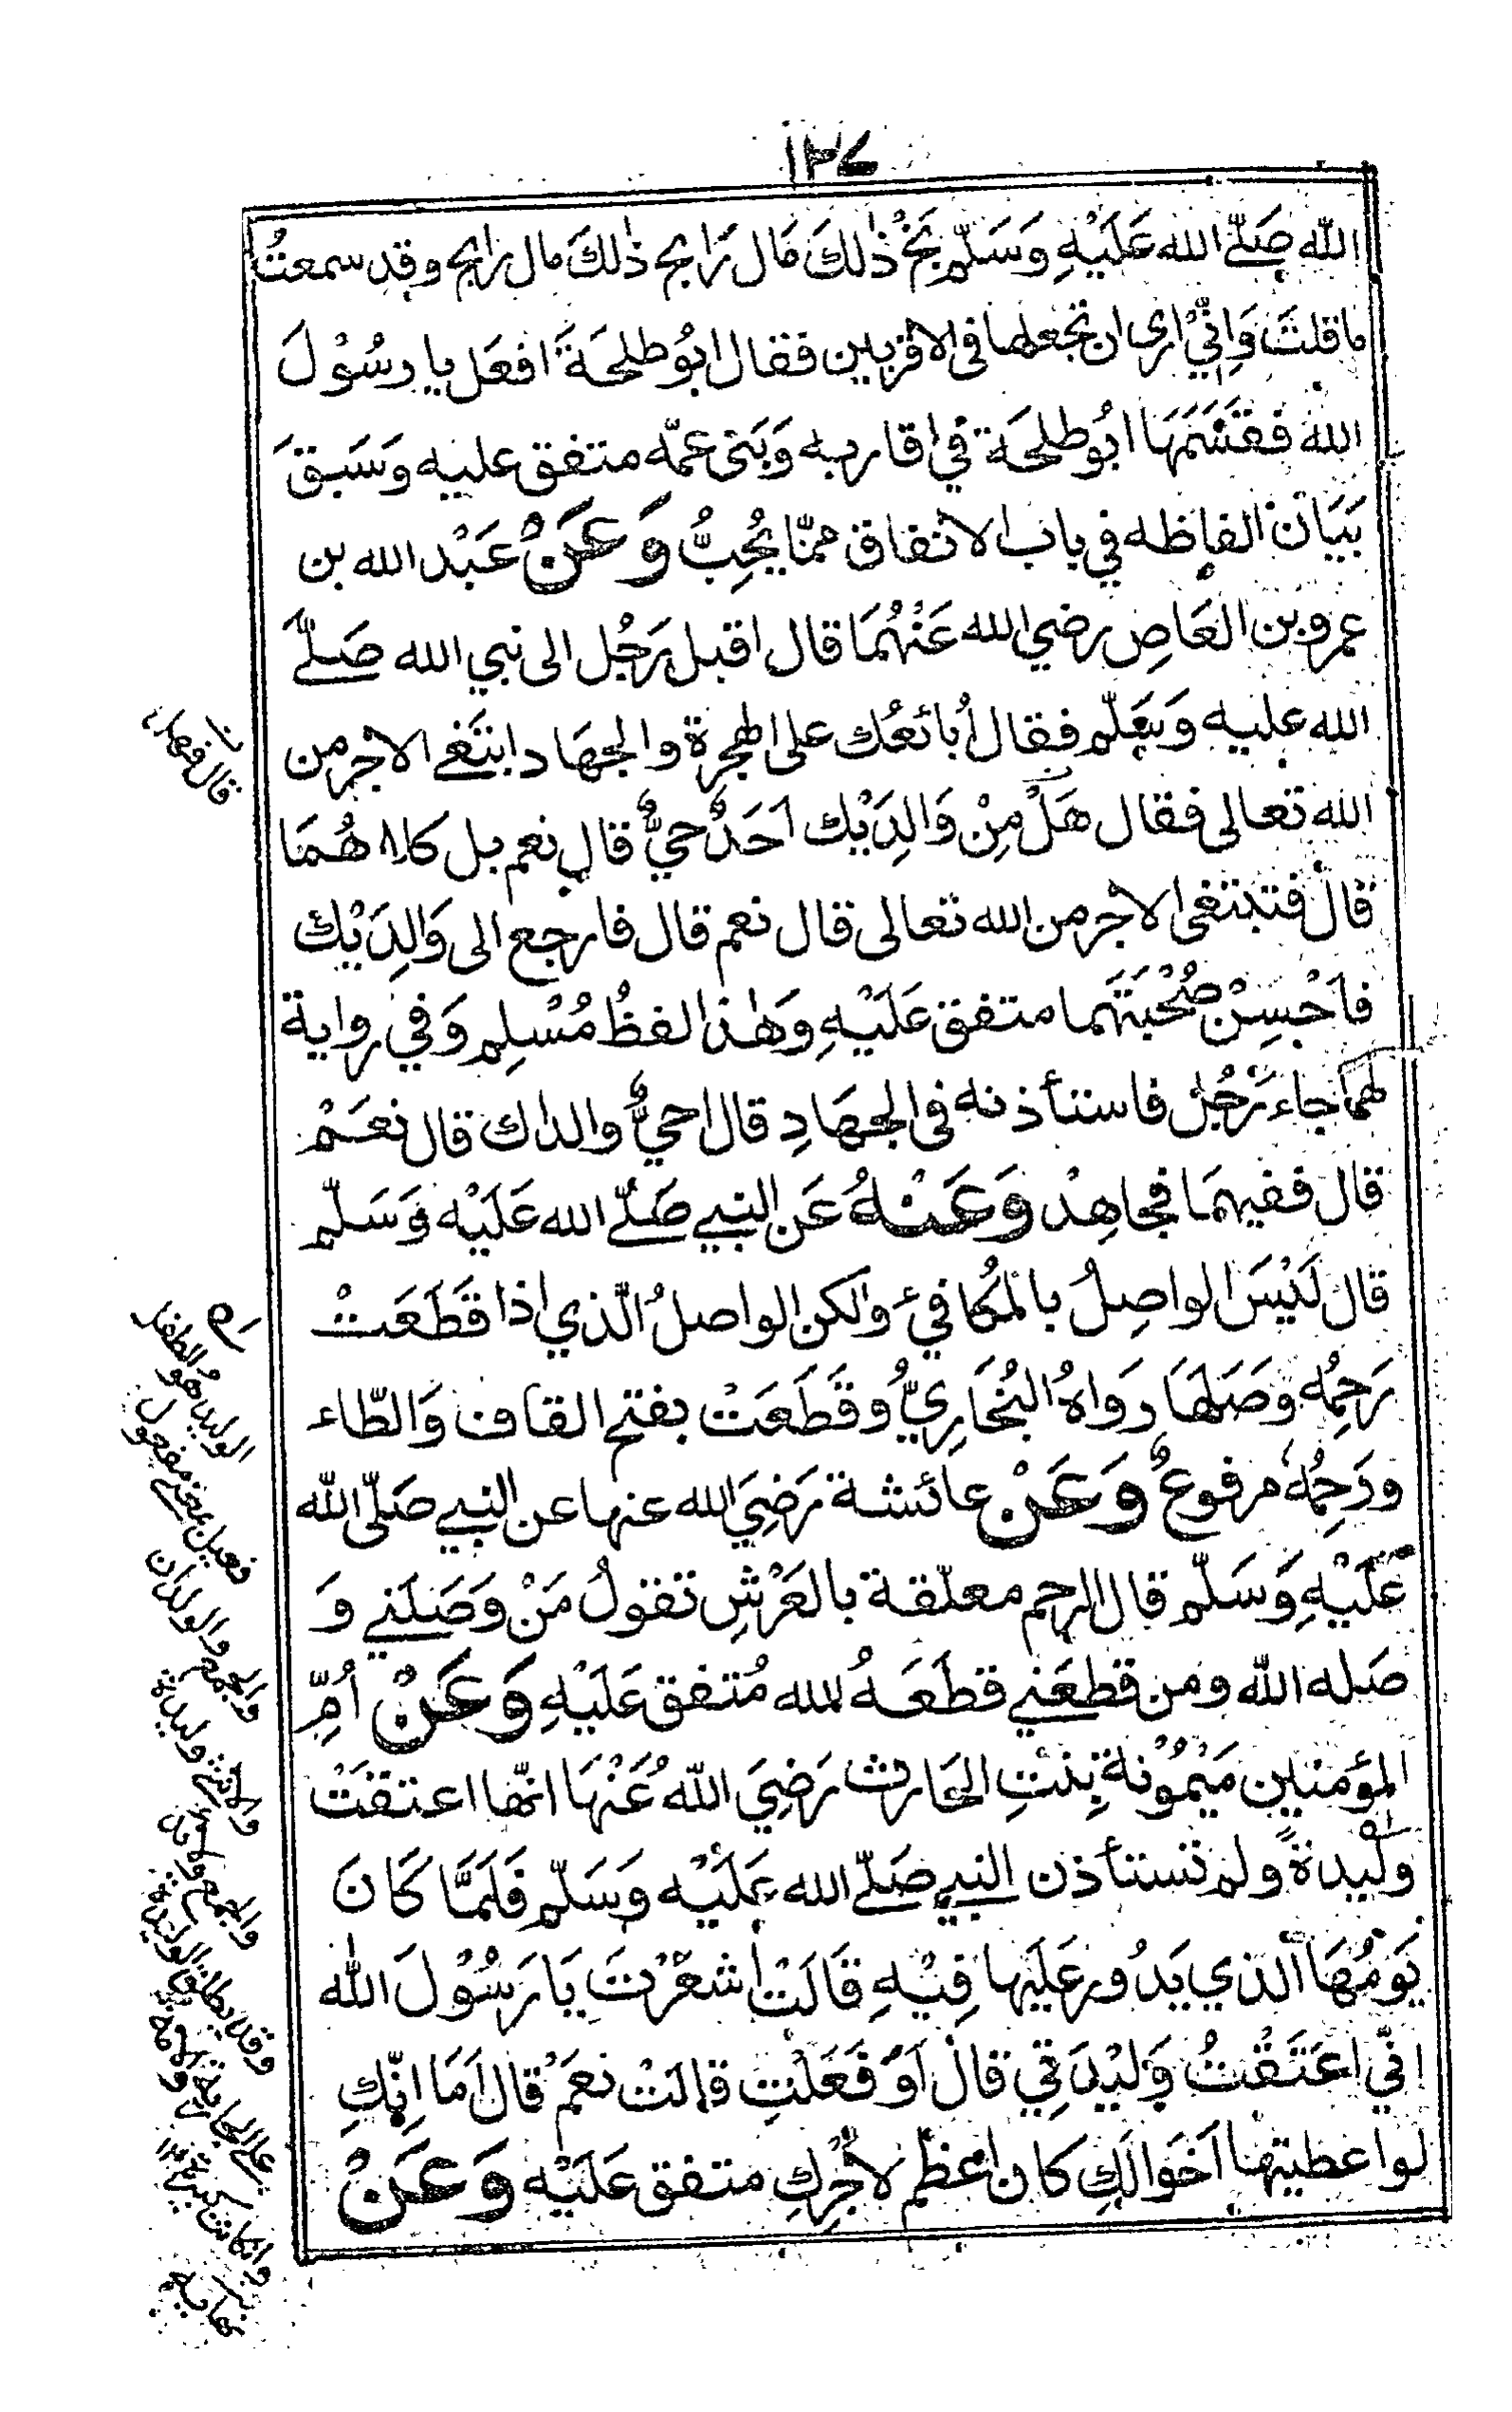 ١٢٧
الله صَلّے الله عَلَيْهِ وَسَلّم بَخْ ذٰلكَ مَال رَابح ذٰلكَ مال رابح وقد سمعتُ
ما قلتَ وَاِنِّيْ ارى ان تجعلها فى الاقربين فقال ابُو طلحَةَ افعَل يا رسُوْلَ
الله فقَسَمَهَا ابُو طلحَة في اقاربه وَبَنى عمّه متفق عليه وَسَبقَ
بَيَان الفاظه في باب الانفاق ممّا يُحِبُّ وَعَنْ عَبْد الله بن
عمرو بن العَاصِ رضي الله عَنْهُمَا قال اقبل رَجُل الى نبي الله صَلّےَ
الله عليه وَسَلّم فقال اُبائعُك على الهجرة والجهَاد ابتَغے الاجر من
الله تعالى فقال هَلْ مِنْ وَالِدَيْك اَحَدٌ حيٌّ قال نعم بل كلاهُمَا
قال فتبتغى الاجر من الله تعالى قال نعم قال فارجع الى وَالِدَيْك
فاَحْسِنْ صُحْبَتَهما متفق عَلَيْهِ وَهٰذا لفظُ مُسْلِم وَفي رواية
لهما جاء رَجُلٌ فاستأذنه فى الجهَادِ قال احيٌّ والداك قال نعَمْ
قال ففيهمَا فجاهِدْ وَعَنْهُ عَن النبي صَلّے الله عَلَيْه وَسَلّم
قال لَيْسَ الواصِلُ بالمُكافيءِ وَلكن الواصلُ الّذي اذا قَطَعَتْ
رَحِمُه وَصَلهَا رَوَاهُ البُخَارِيُّ وَقَطَعَتْ بفتح القاف وَالطّاء
ورَحِمُهُ مرفوعٌ وَعَنْ عائشة رَضِيَ الله عنها عن النبي صَلّى الله
عَلَيْهِ وَسَلّم قال الرحم معلّقة بالعَرْشِ تقولُ مَنْ وَصَلَني وَ
صَله الله ومن قطعَني قطَعَهُ الله مُتفق عَلَيْهِ وَعَنْ اُمِّ
المؤمنين مَيْمُوْنة بِنْتِ الحَارث رَضِيَ اللهُ عَنْهَا انّها اعتقتْ
وليدةً ولم تستأذن النبي صَلّے الله عَلَيْه وَسَلّم فَلَمَّا كَانَ
يَوْمُهَا الّذي يَدُور عَلَيها فِيْهِ قَالَتْ اشعَرْتَ يَا رَسُوْلَ الله
انّي اعَتَقْتُ وَليْدَتي قال اَوَفَعَلْتِ قالتْ نعَمْ قال اَمَا اِنّكِ
لو اعطيتها اَخوَالَكِ كان اعظم لاَجْرِكِ متفق عَلَيْه وَعَنْ
قال فهل
الوليد هو الطفل
فعيل بمعنى مفعول
والجمع والولدان
والانثى وليدة
والجمع
وقد يطلق الوليدة
على الجارية والامة
وان كانت كبيرة ١٢
نهاية